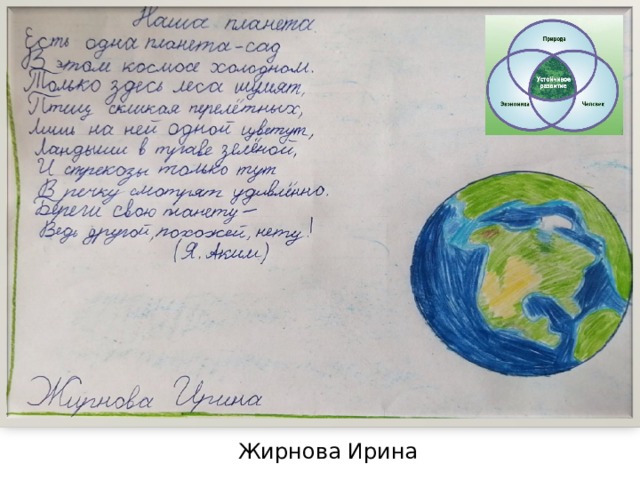 Наша планета
Есть одна планета-сад
В этом космосе холодном.
Только здесь леса шумят,
Птиц скликая перелётных,
Лишь на ней одной цветут,
Ландыши в траве зелёной,
И стрекозы только тут
В речку смотрят удивлённо.
Береги свою планету –
Ведь другой, похожей, нету!
(Я. Аким)
Жирнова Ирина
Природа
Устойчивое
развитие
Экономика
Человек
Жирнова Ирина